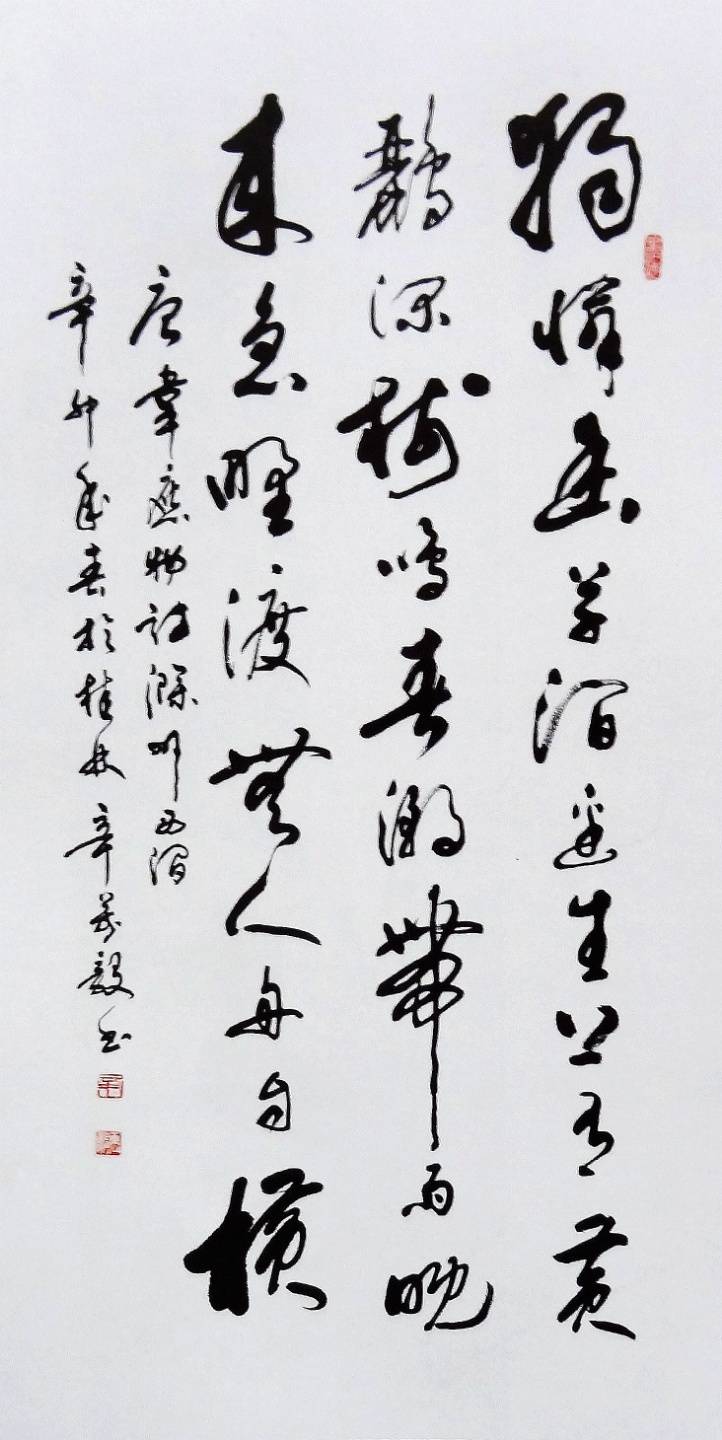 獨憐幽草澗邊生上有黃
鸝深樹鳴春潮帶雨晚
來急野渡無人舟自橫
唐韋應物詩滁州西澗
辛卯年春於桂林辛萬毅書